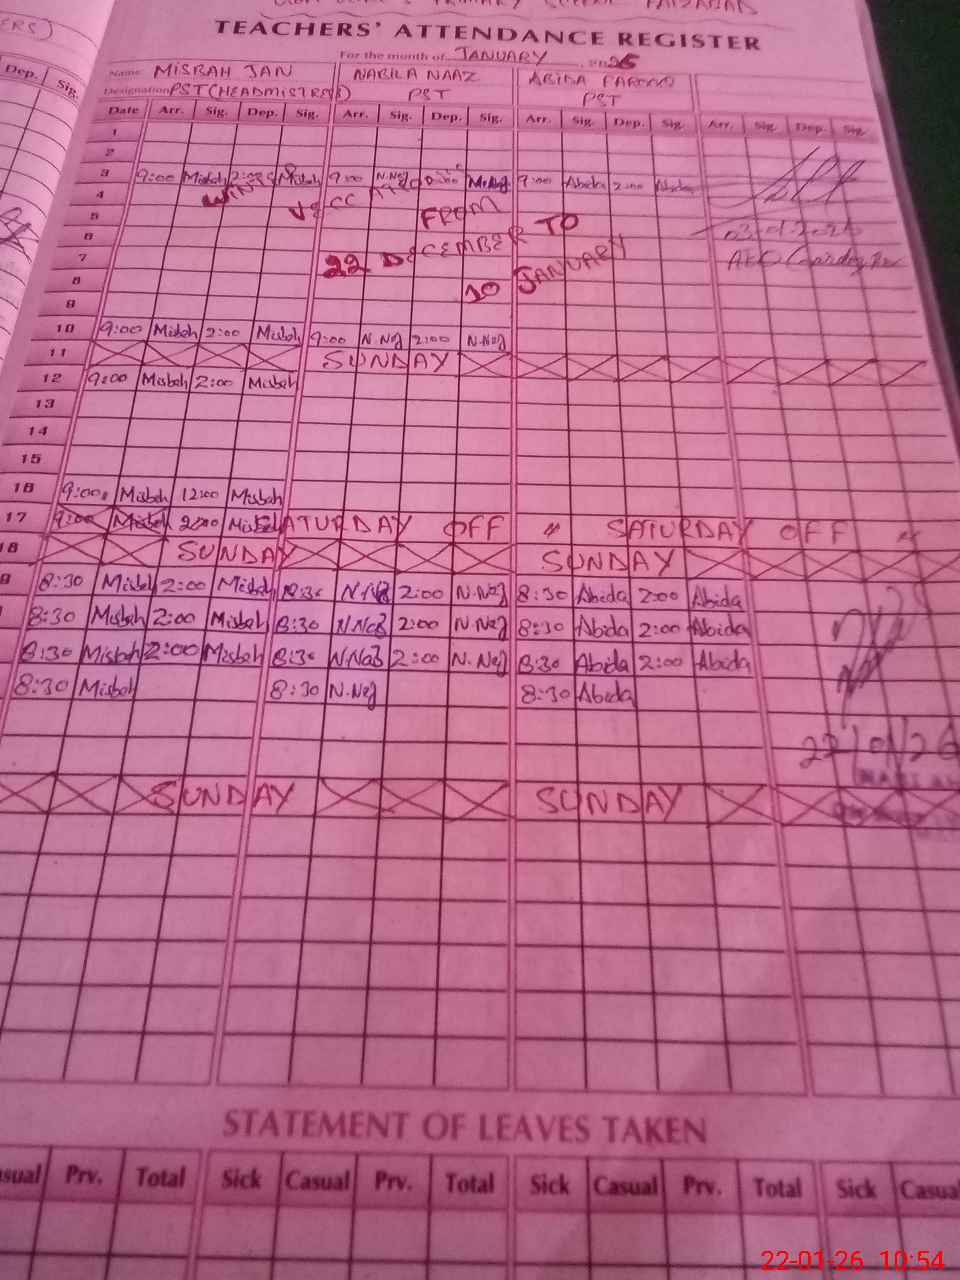 ERS)
TEACHERS' ATTENDANCE REGISTER
For the month of JANUARY
Name MISBAH JAN NABILA NAAZ ABIDA
Designation PST (HEADMISTRESS) PST PST
Dep. Sig. Date Arr. Sig. Dep. Sig. Arr. Sig. Dep. Sig. Arr. Sig. Dep. Sig. Arr. Sig. Dep. Sig.
1
2
3 9:00 Misbah 2:00 Misbah 9:00 N.Naz 2:00 N.Naz 9:00 Abida 2:00 Abida
4
FROM
5 TO
6 DECEMBER
7 22 JANUARY
8 10
9
10 9:00 Misbah 2:00 Misbah 9:00 N.Naz 2:00 N.Naz
11 SUNDAY
12 9:00 Misbah 2:00 Misbah
13
14
15
16 9:00 Misbah 12:00 Misbah
17 9:00 Misbah 2:00 SATURDAY OFF " SATURDAY OFF "
18 SUNDAY SUNDAY
9 8:30 Misbah 2:00 Misbah 8:30 N.Naz 2:00 N.Naz 8:30 Abida 2:00 Abida
8:30 Misbah 2:00 Misbah 8:30 N.Naz 2:00 N.Naz 8:30 Abida 2:00 Abida
8:30 Misbah 2:00 Misbah 8:30 N.Naz 2:00 N.Naz 8:30 Abida 2:00 Abida
8:30 Misbah 8:30 N.Naz 8:30 Abida
22/01/26
SUNDAY SUNDAY
STATEMENT OF LEAVES TAKEN
asual Prv. Total Sick Casual Prv. Total Sick Casual Prv. Total Sick Casual
22-01-26 10:54